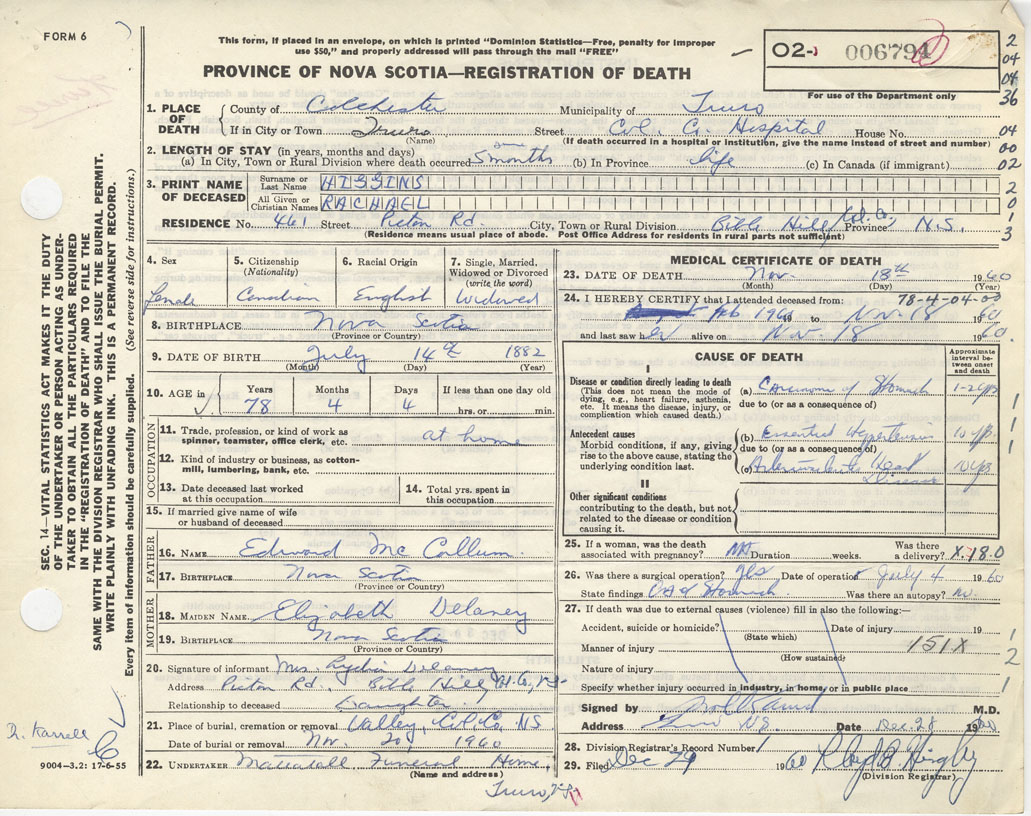 FORM 6
This form, if placed in an envelope, on which is printed "Dominion Statistics—Free, penalty for improper
use $50," and properly addressed will pass through the mail "FREE"
PROVINCE OF NOVA SCOTIA—REGISTRATION OF DEATH
02- 006794
For use of the Department only
2
04
04
36
04
00
02
2
0
1
3
1. PLACE OF DEATH County of Colchester Municipality of Truro
If in City or Town Truro Street Col. Co. Hospital House No.
(Name) (If death occurred in a hospital or institution, give the name instead of street and number)
2. LENGTH OF STAY (in years, months and days)
(a) In City, Town or Rural Division where death occurred 5 months (b) In Province life (c) In Canada (if immigrant)
3. PRINT NAME OF DECEASED Surname or Last Name HIGGINS
All Given or Christian Names RACHAEL
RESIDENCE No. 461 Street Picton Rd. City, Town or Rural Division Bible Hill, Col. Co. Province N.S.
(Residence means usual place of abode. Post Office Address for residents in rural parts not sufficient)
4. Sex
female
5. Citizenship
(Nationality)
Canadian
6. Racial Origin
English
7. Single, Married,
Widowed or Divorced
(write the word)
Widowed
8. BIRTHPLACE Nova Scotia
(Province or Country)
9. DATE OF BIRTH July 14th 1882
(Month) (Day) (Year)
10. AGE in Years Months Days If less than one day old
78 4 4 hrs. or min.
OCCUPATION
11. Trade, profession, or kind of work as
spinner, teamster, office clerk, etc. at home
12. Kind of industry or business, as cotton-
mill, lumbering, bank, etc.
13. Date deceased last worked
at this occupation
14. Total yrs. spent in
this occupation
15. If married give name of wife
or husband of deceased
FATHER
16. NAME Edward McCallum
17. BIRTHPLACE Nova Scotia
(Province or Country)
MOTHER
18. MAIDEN NAME Elizabeth Delaney
19. BIRTHPLACE Nova Scotia
(Province or Country)
20. Signature of informant Mrs. Lydia Delaney
Address Picton Rd. Bible Hill, Col. Co., N.S.
Relationship to deceased Daughter
21. Place of burial, cremation or removal Valley, Col. Co. NS
Date of burial or removal Nov. 20, 1960
22. UNDERTAKER Mattatall Funeral Home,
(Name and address)
Truro, N.S.
MEDICAL CERTIFICATE OF DEATH
23. DATE OF DEATH Nov. 18th 1960
(Month) (Day) (Year)
78-4-04-00
24. I HEREBY CERTIFY that I attended deceased from:
Feb 1960 19 to Nov 18 1960
and last saw her alive on Nov. 18 1960.
CAUSE OF DEATH
Approximate
interval be-
tween onset
and death
I
Disease or condition directly leading to death
(This does not mean the mode of
dying, e.g., heart failure, asthenia,
etc. It means the disease, injury, or
complication which caused death.)
(a) Carcinoma of Stomach 1-2 yrs
due to (or as a consequence of)
Antecedent causes
Morbid conditions, if any, giving
rise to the above cause, stating the
underlying condition last.
(b) Essential Hypertension 10 yrs
due to (or as a consequence of)
(c) Arteriosclerotic Heart Disease 10 yrs
II
Other significant conditions
contributing to the death, but not
related to the disease or condition
causing it.
1
1
1
25. If a woman, was the death
associated with pregnancy? No Duration weeks. Was there
a delivery? X.18.0
26. Was there a surgical operation? yes Date of operation July 4 1960
State findings Ca of Stomach Was there an autopsy? No.
27. If death was due to external causes (violence) fill in also the following:—
Accident, suicide or homicide? Date of injury 19
(State which)
Manner of injury 151X
(How sustained)
Nature of injury
Specify whether injury occurred in industry, in home, or in public place
1
2
1
Signed by M.D.
Address Truro NS Date Dec. 28 1960
28. Division Registrar's Record Number
29. Filed Dec 29 1960
(Division Registrar)
SEC. 14—VITAL STATISTICS ACT MAKES IT THE DUTY
OF THE UNDERTAKER OR PERSON ACTING AS UNDER-
TAKER TO OBTAIN ALL THE PARTICULARS REQUIRED
IN THE "REGISTRATION OF DEATH" AND TO FILE THE
SAME WITH THE DIVISION REGISTRAR WHO SHALL ISSUE THE BURIAL PERMIT.
WRITE PLAINLY WITH UNFADING INK. THIS IS A PERMANENT RECORD.
Every item of information should be carefully supplied. (See reverse side for instructions.)
9004-3.2: 17-6-55